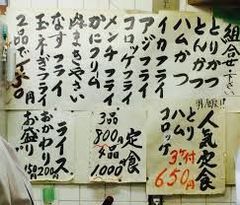 組合せ下さい
とんかつ
とりかつ
ハムかつ
イカフライ
アジフライ
コロッケフライ
メンチフライ
かにクリーム
肉まきやさい
なすフライ
玉ネギフライ
2品で
人気定食
3ケ付
650円
とり
ハム
コロッケ
定食
3品
800円
4品
1,000円
ライス
おかわり
150
200